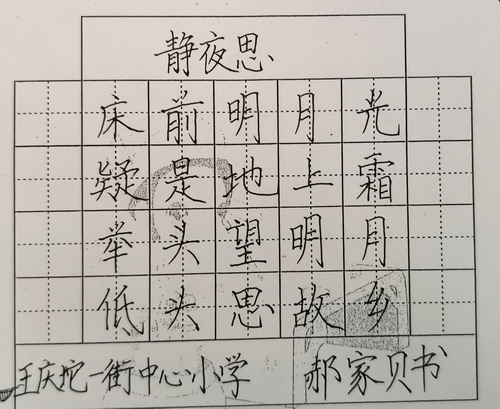 静夜思
床前明月光
疑是地上霜
举头望明月
低头思故乡
王庆坨一街中心小学 郝家贝书